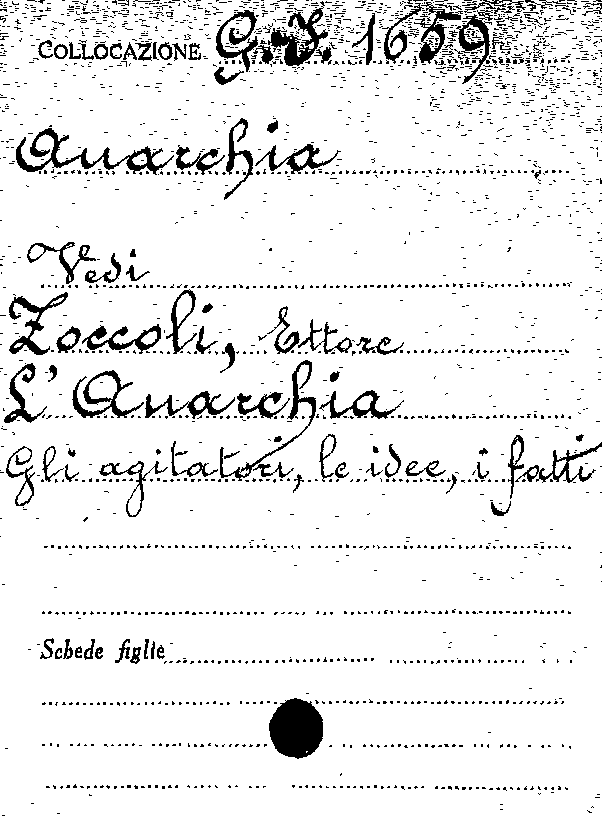 COLLOCAZIONE G.I. 1659
Anarchia
Vedi
Zoccoli, Ettore
L'Anarchia
Gli agitatori, le idee, i fatti
Schede figlie